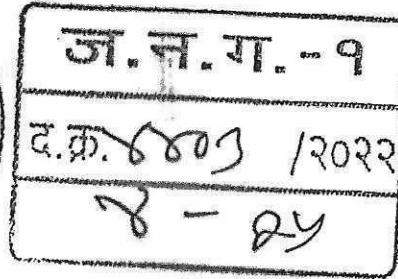 ज.न.ग.-१
द.क्र. ४४०३ /२०२२
४ - २५